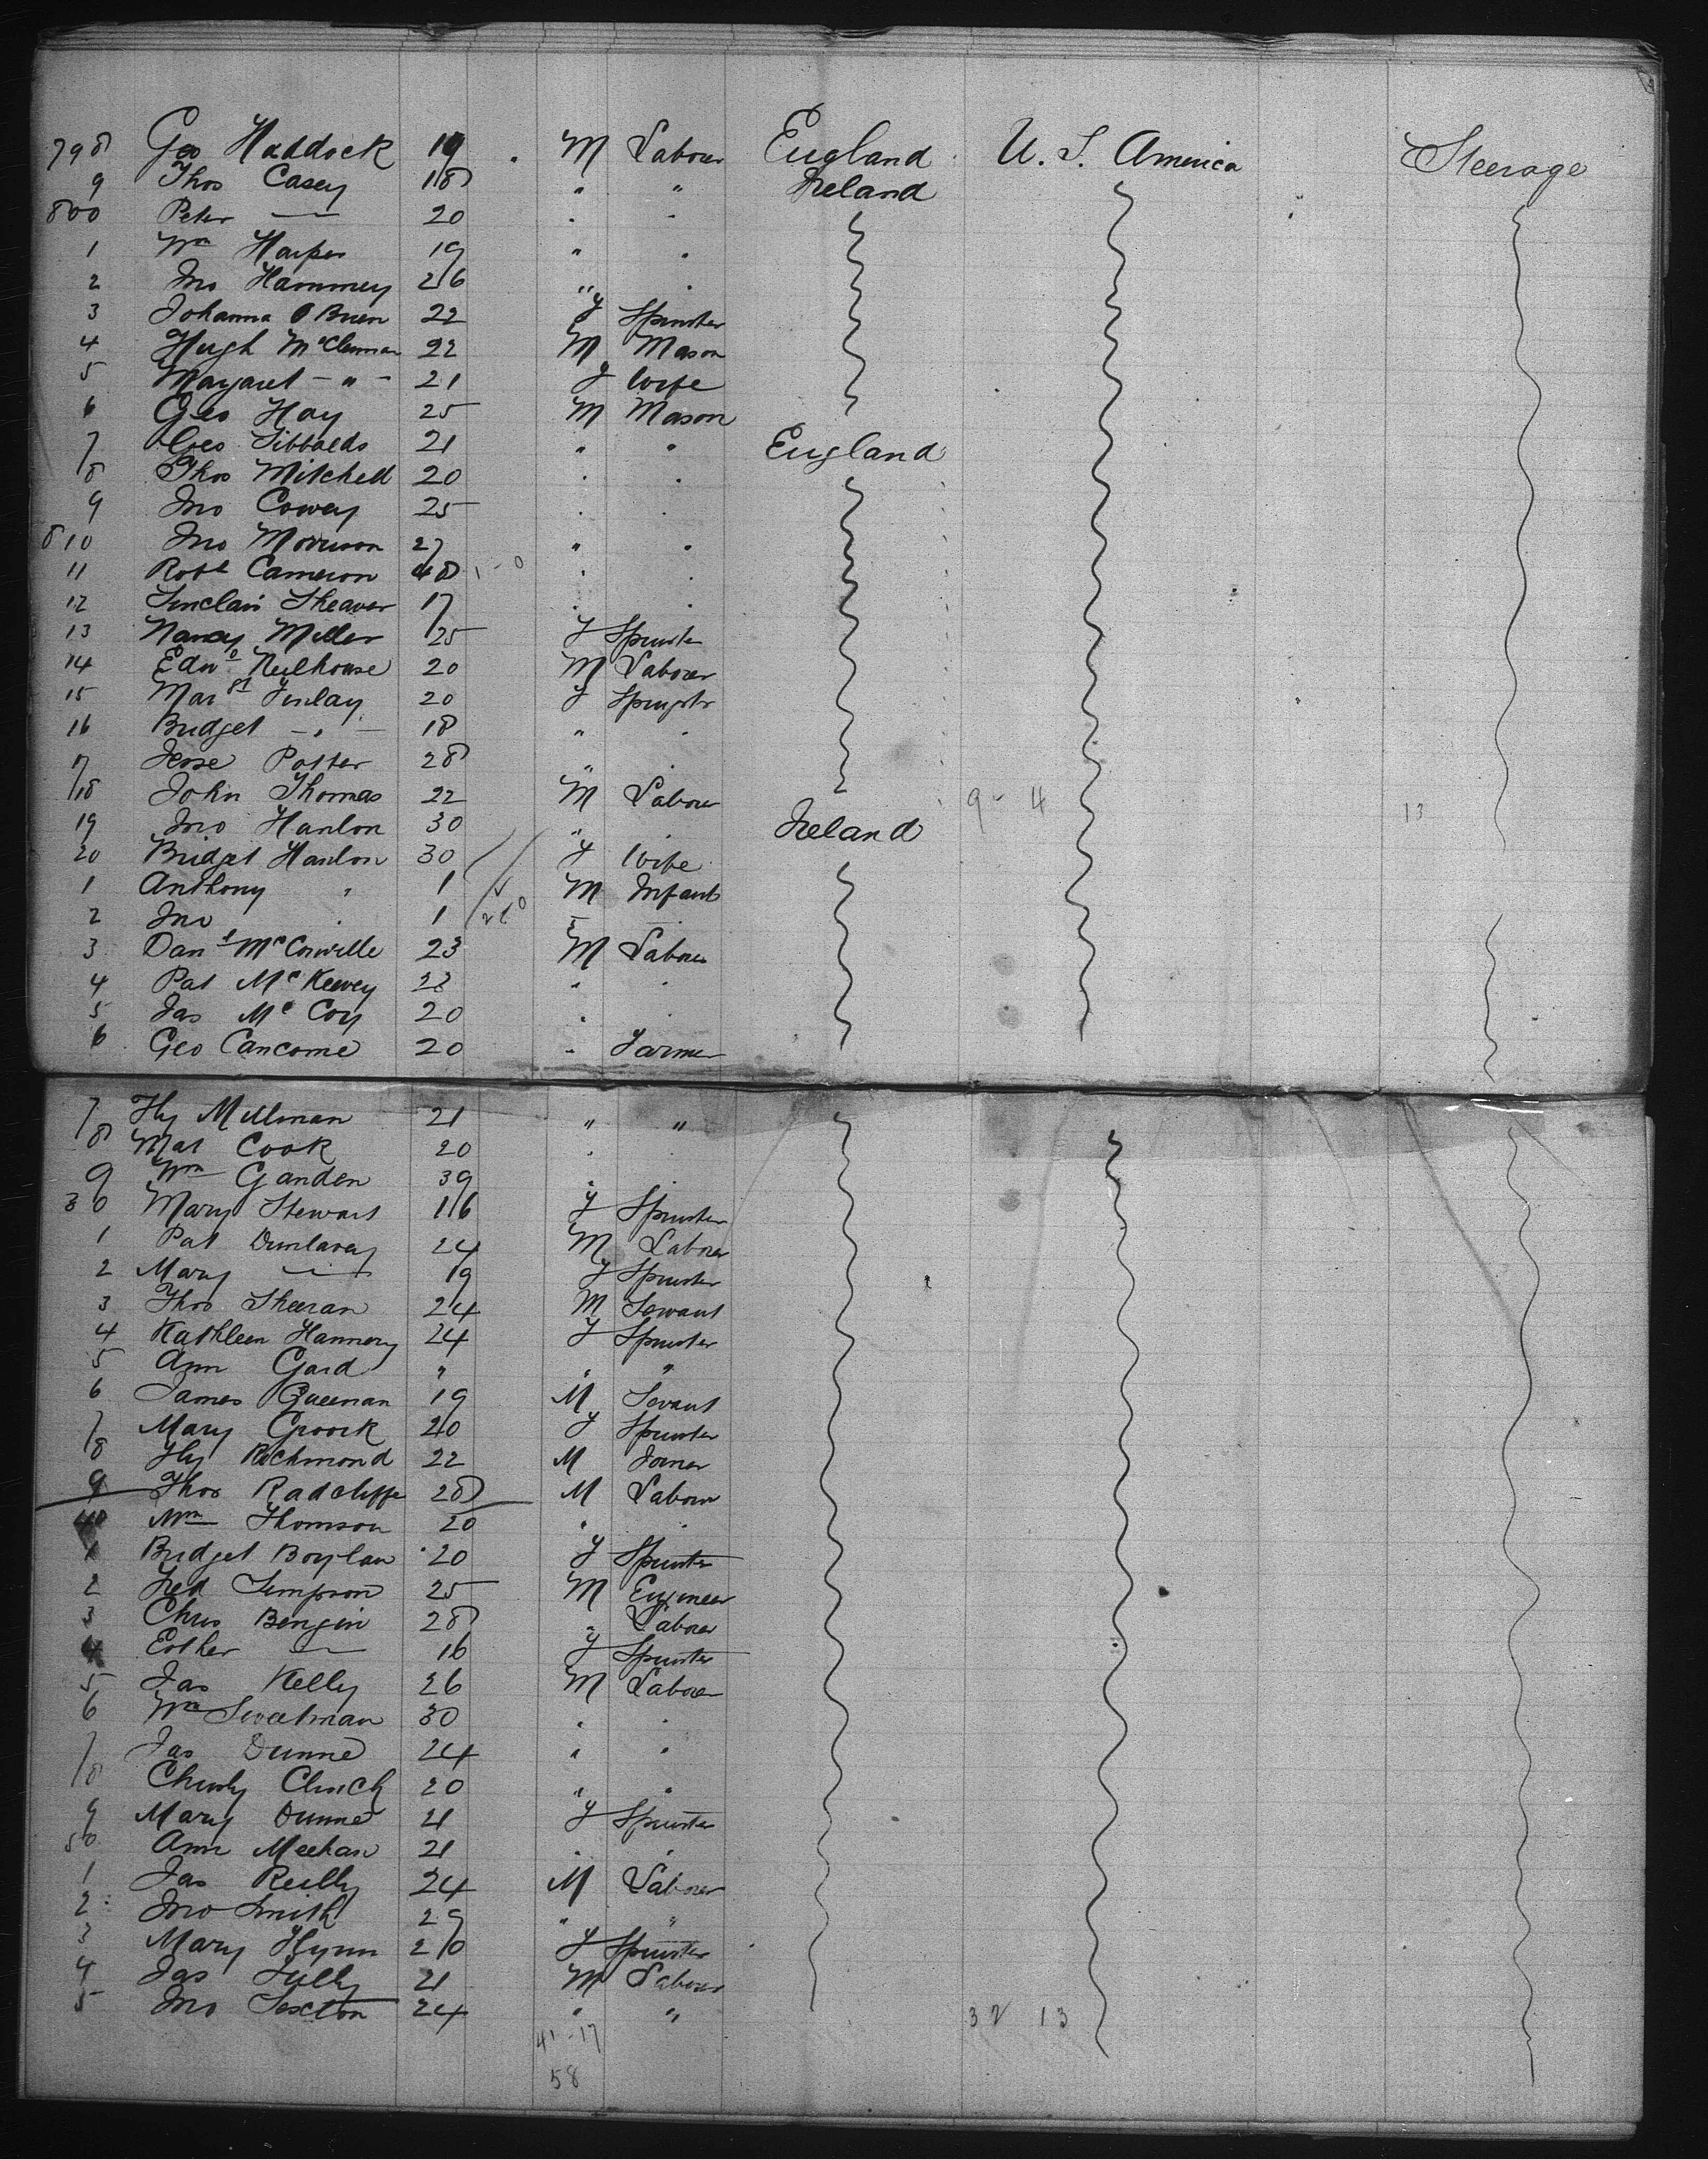 798 Geo Haddock 19 M Laborer England U. S. America Steerage
9 Thos Casey 18 " " Ireland
800 Peter — 20
1 Wm Harper 19 "
2 Jno Hammey 26 "
3 Johanna O Brien 22 F Spinster
4 Hugh McClennan 22 M Mason
5 Margaret - " - 21 F Wife
6 Geo Hay 25 M Mason
7 Geo Sibbalds 21 " " England
8 Thos Mitchell 20
9 Jno Cowey 25
810 Jno Morrison 27 " "
11 Robt Cameron 48 1 - 0
12 Sinclair Shearer 17
13 Nancy Miller 25 F Spinster
14 Edwd Neilhouse 20 M Laborer
15 Margt Finlay 20 F Spinster
16 Bridget - " - 18 "
17 Jesse Potter 28 "
18 John Thomas 22 M Laborer 9 - 4 13
19 Jno Hanlon 30 " Ireland
20 Bridget Hanlon 30 F Wife
1 Anthony " 1 M Infant
2 Jno 1
3 Danl McConville 23 M Laborer
4 Pat McKeevey 23
5 Jas McCoy 20
6 Geo Cancome 20 Farmer
7 Hy Millman 21 " "
8 Mat Cook 20
9 Wm Ganden 39
30 Mary Stewart 16 F Spinster
1 Pat Dunlavey 24 M Laborer
2 Mary — 19 F Spinster
3 Thos Sheeran 24 M Servant
4 Kathleen Hannery 24 F Spinster
5 Ann Gard " " "
6 James Queenan 19 M Servant
7 Mary Groork 20 F Spinster
8 Hy Richmond 22 M Joiner
9 Thos Radcliffe 28 M Laborer
40 Wm Thomson 20
1 Bridget Boylan 20 F Spinster
2 Fred Simpson 25 M Engineer
3 Chris Bengin 28 " Laborer
4 Esther — 16 F Spinster
5 Jas Kelly 26 M Laborer
6 Wm Sweetman 30
7 Jas Dunne 24 "
8 Christy Clinch 20 " "
9 Mary Dunne 21 F Spinster
50 Ann Meehan 21
1 Jas Reilly 24 M Laborer
2 Jno Smith 29 " "
3 Mary Flynn 20 F Spinster
4 Jas Tully 21 M Laborer
5 Jno Sexton 24 " " 32 13
41 - 17
58